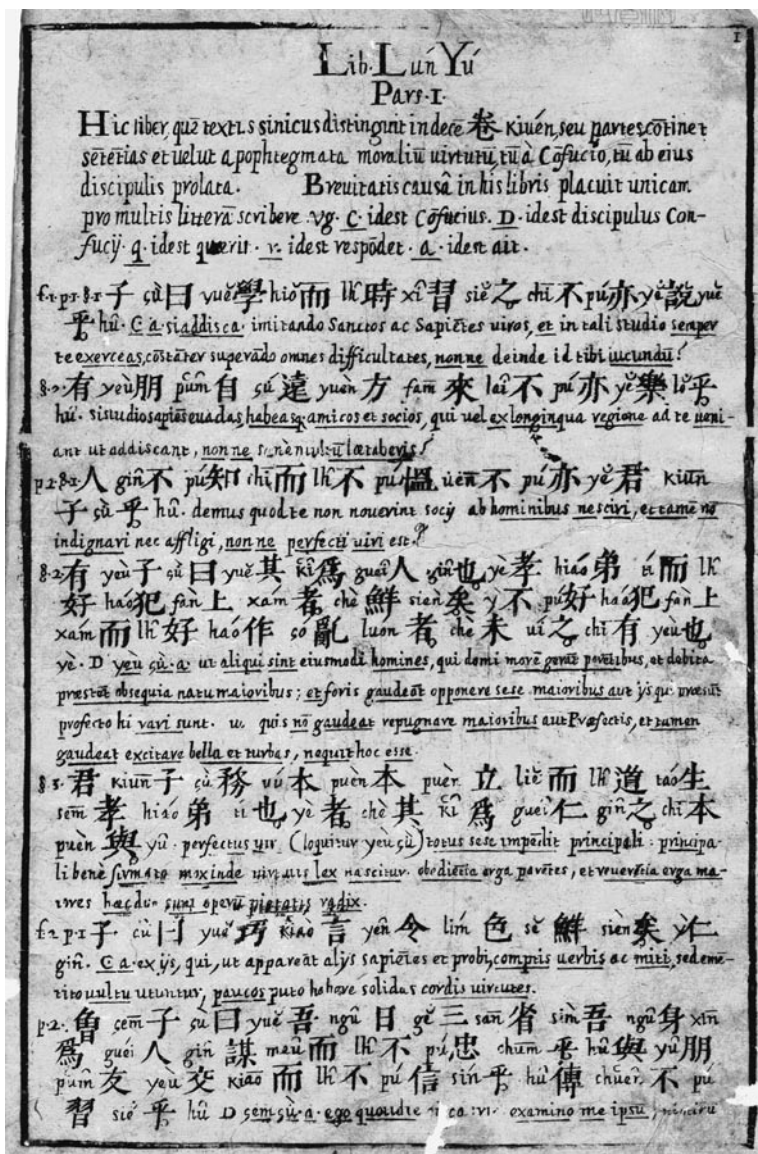 1
Lib. Lún Yú
Pars. I.
Hic liber, quē textus sinicus distinguit in decē 卷 Kiuén, seu partes, cōtinet
sētētias et uelut apophtegmata moraliū uirtutū, tū à Cōfucio, tū ab eius
discipulis prolata. Breuitatis causâ in his libris placuit unicam
pro multis litterā scribere. vg. C. idest Cōfucius. D. idest discipulus Con-
fucij. q. idest quærit. r. idest respōdet. a. idest ait.
f.1. p.1. §.1. 子 çù 曰 yuĕ 學 hiŏ 而 lh̃ 時 xî 習 siĕ 之 chī 不 pú 亦 yĕ 說 yuĕ
乎 hû. C. a. si addisca. imitando Sanctos ac Sapiētes uiros, et in tali studio semper
te exerceas, cōstāter superādo omnes difficultates, nonne deinde id tibi iucundū?
§.2. 有 yeù 朋 pûm 自 çú 遠 yuèn 方 fam 來 laî 不 pú 亦 yĕ 樂 lŏ 乎
hû. si studio sapiēs euadas habeasq. amicos et socios, qui uel ex longinqua regione ad te ueni-
ant ut addiscant, nonne multū lætaberis?
p.2. §.1. 人 gin̂ 不 pú 知 chī 而 lh̃ 不 pú 慍 uén 不 pú 亦 yĕ 君 kiun̄
子 çù 乎 hû. demus quod te non nouerint socij ab hominibus nesciri, et tamē nō
indignari nec affligi, nonne perfecti uiri est?
§.2. 有 yeù 子 çù 曰 yuĕ 其 kî 爲 gueî 人 gin̂ 也 yè 孝 hiáo 弟 tí 而 lh̃
好 haó 犯 fàn 上 xám 者 chè 鮮 sièn 矣 ỳ 不 pú 好 haó 犯 fàn 上
xám 而 lh̃ 好 haó 作 çó 亂 luon 者 chè 未 uí 之 chī 有 yeù 也
yè. D yeù çù. a. ut aliqui sint eiusmodi homines, qui domi morē gerūt parētibus, et debita
præstēt obsequia natu maioribus; et foris gaudeāt opponere sese maioribus aut ijs qui præsūt
profecto hi rari sunt. u. quis nō gaudeat repugnare maioribus aut Præfectis, et tamen
gaudeat excitare bella et turbas, nequit hoc esse.
§.3. 君 kiun̄ 子 çù 務 vú 本 puèn 本 puèn 立 liĕ 而 lh̃ 道 taó 生
sem̄ 孝 hiáo 弟 tí 也 yè 者 chè 其 kî 爲 gueî 仁 gin̂ 之 chī 本
puèn 與 yû. perfectus uir (loquitur yeù çù) totus sese impēdit principali. principa-
li benè firmato mox inde uirtutis lex nascitur. obediētia erga parētes, et reuerētia erga ma-
iores hæc duo sunt operū pietatis radix.
f.2. p.1. 子 çù 曰 yuĕ 巧 kiào 言 yên 令 lim 色 sĕ 鮮 sièn 矣 ỳ 仁
gin̂. C a. ex ijs, qui, ut appareāt alijs sapiētes et probi, comptis uerbis ac miti, sed emē-
tito uultu utuntur, paucos puto habere solidas cordis uirtutes.
p.2. 曾 çem̄ 子 çù 曰 yuĕ 吾 ngû 日 gĕ 三 san̄ 省 sìm 吾 ngû 身 xin̄
爲 guéi 人 gin̂ 謀 meû 而 lh̃ 不 pú 忠 chum̄ 乎 hû 與 yû 朋
pum̂ 友 yeù 交 kiāo 而 lh̃ 不 pú 信 sín 乎 hû 傳 chuên 不 pú
習 siĕ 乎 hû D çem çù. a. ego quotidie examino me ipsū, nimirū